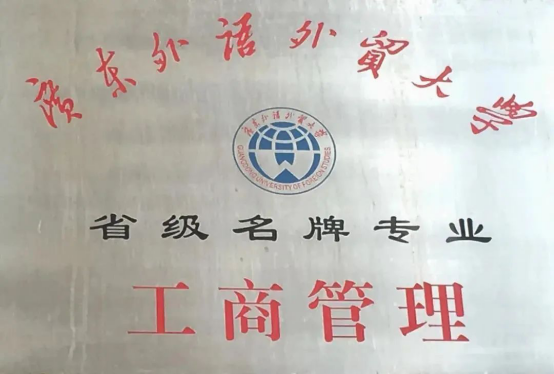 廣东外语外貿大學
廣东外语外貿大學
GUANGDONG UNIVERSITY OF FOREIGN STUDIES
省级名牌专业
工商管理